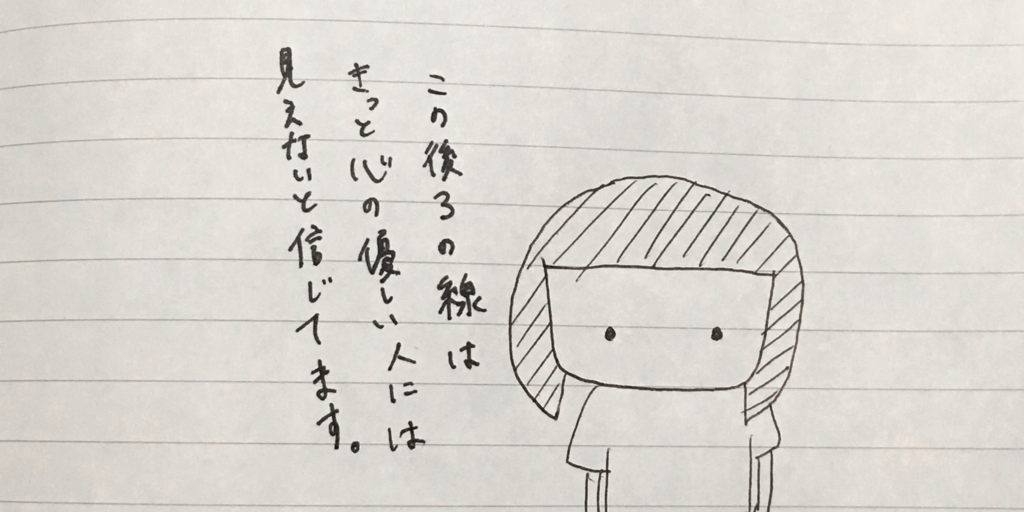 この後ろの線は
きっと心の優しい人には
見えないと信じてます。